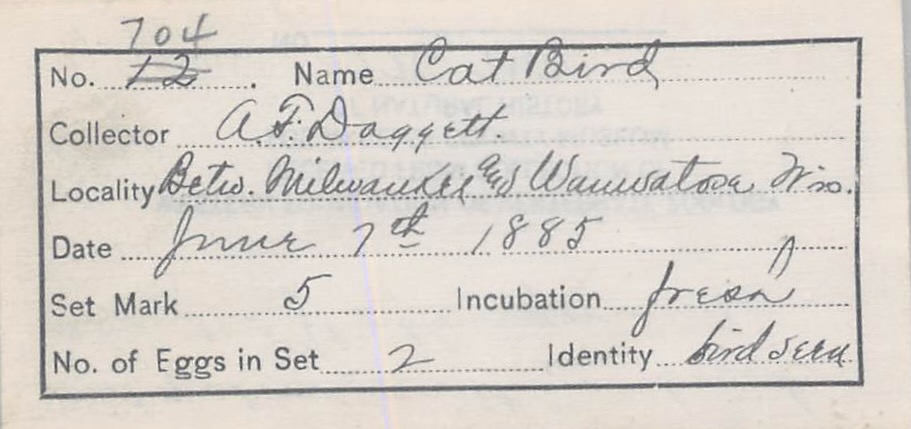 704
No. 12. Name Cat Bird
Collector A.F. Daggett
Locality Betw. Milwaukee and Wauwatosa Wis.
Date June 7th 1885
Set Mark 5 Incubation fresh
No. of Eggs in Set 2 Identity bird seen